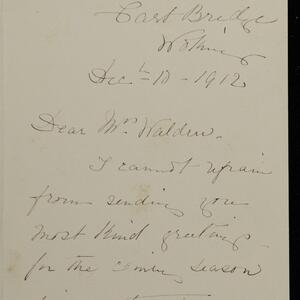 East Bridge
Woking
Dec 10 - 1912
Dear Mrs Walden.
I cannot refrain
from sending you
most kind greetings
for the coming season